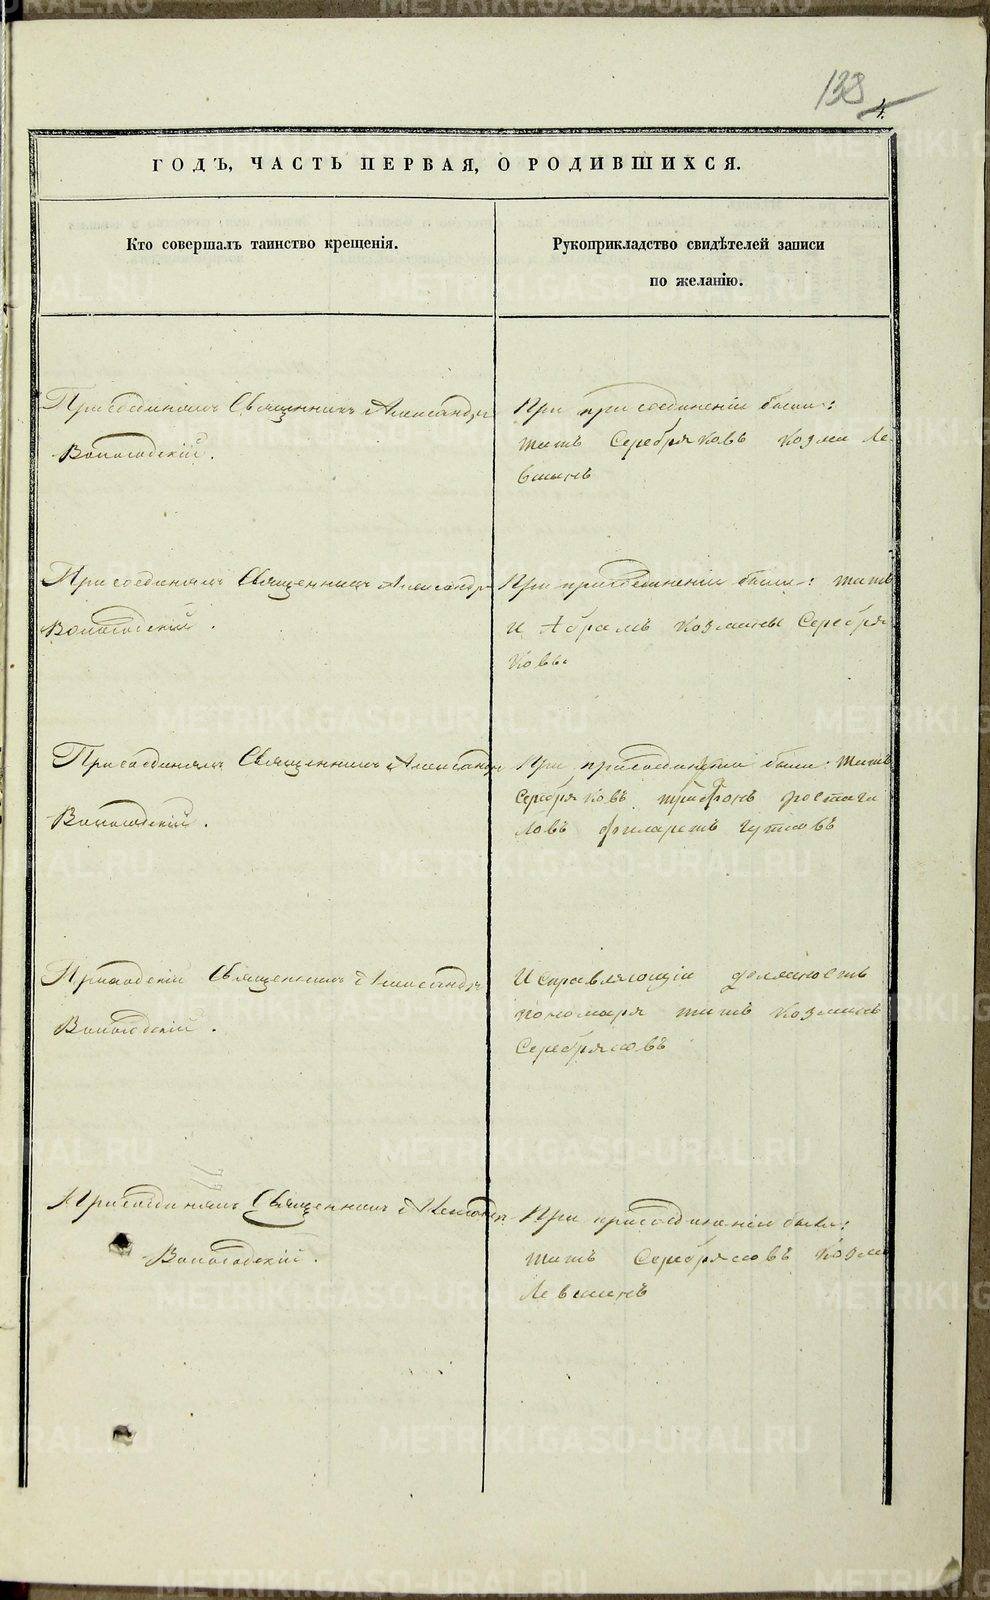 138
4.
ГОДЪ, ЧАСТЬ ПЕРВАЯ, О РОДИВШИХСЯ.
Кто совершалъ таинство крещенія.
Рукоприкладство свидѣтелей записи
по желанію.
Присоединялъ Священникъ Александръ
Вологодскій.
При присоединеніи были:
титъ Серебряковъ козма Ле
вшинъ
Присоединялъ Священникъ Александръ
Вологодскій.
При присоединеніи были: титъ
и Абрамъ козмины Серебря
ковы
Присоединялъ Священникъ Александръ
Вологодскій.
При присоединеніи были: титъ
Серебряковъ трифонъ
филаретъ
Приходскій Священникъ Александръ
Вологодскій.
Исправляющій должность
пономаря титъ козминъ
Серебряковъ
Присоединялъ Священникъ Александръ
Вологодскій.
При присоединеніи были:
титъ Серебряковъ козма
Левшинъ
METRIKI.GASO-URAL.RU